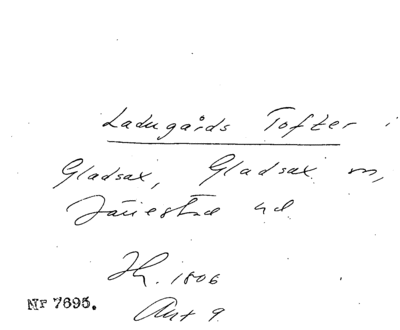 Ladugårds Tofter i
Gladsax, Gladsax sn,
Järrestad hd
Jh. 1806
Akt 9
NR 7695.